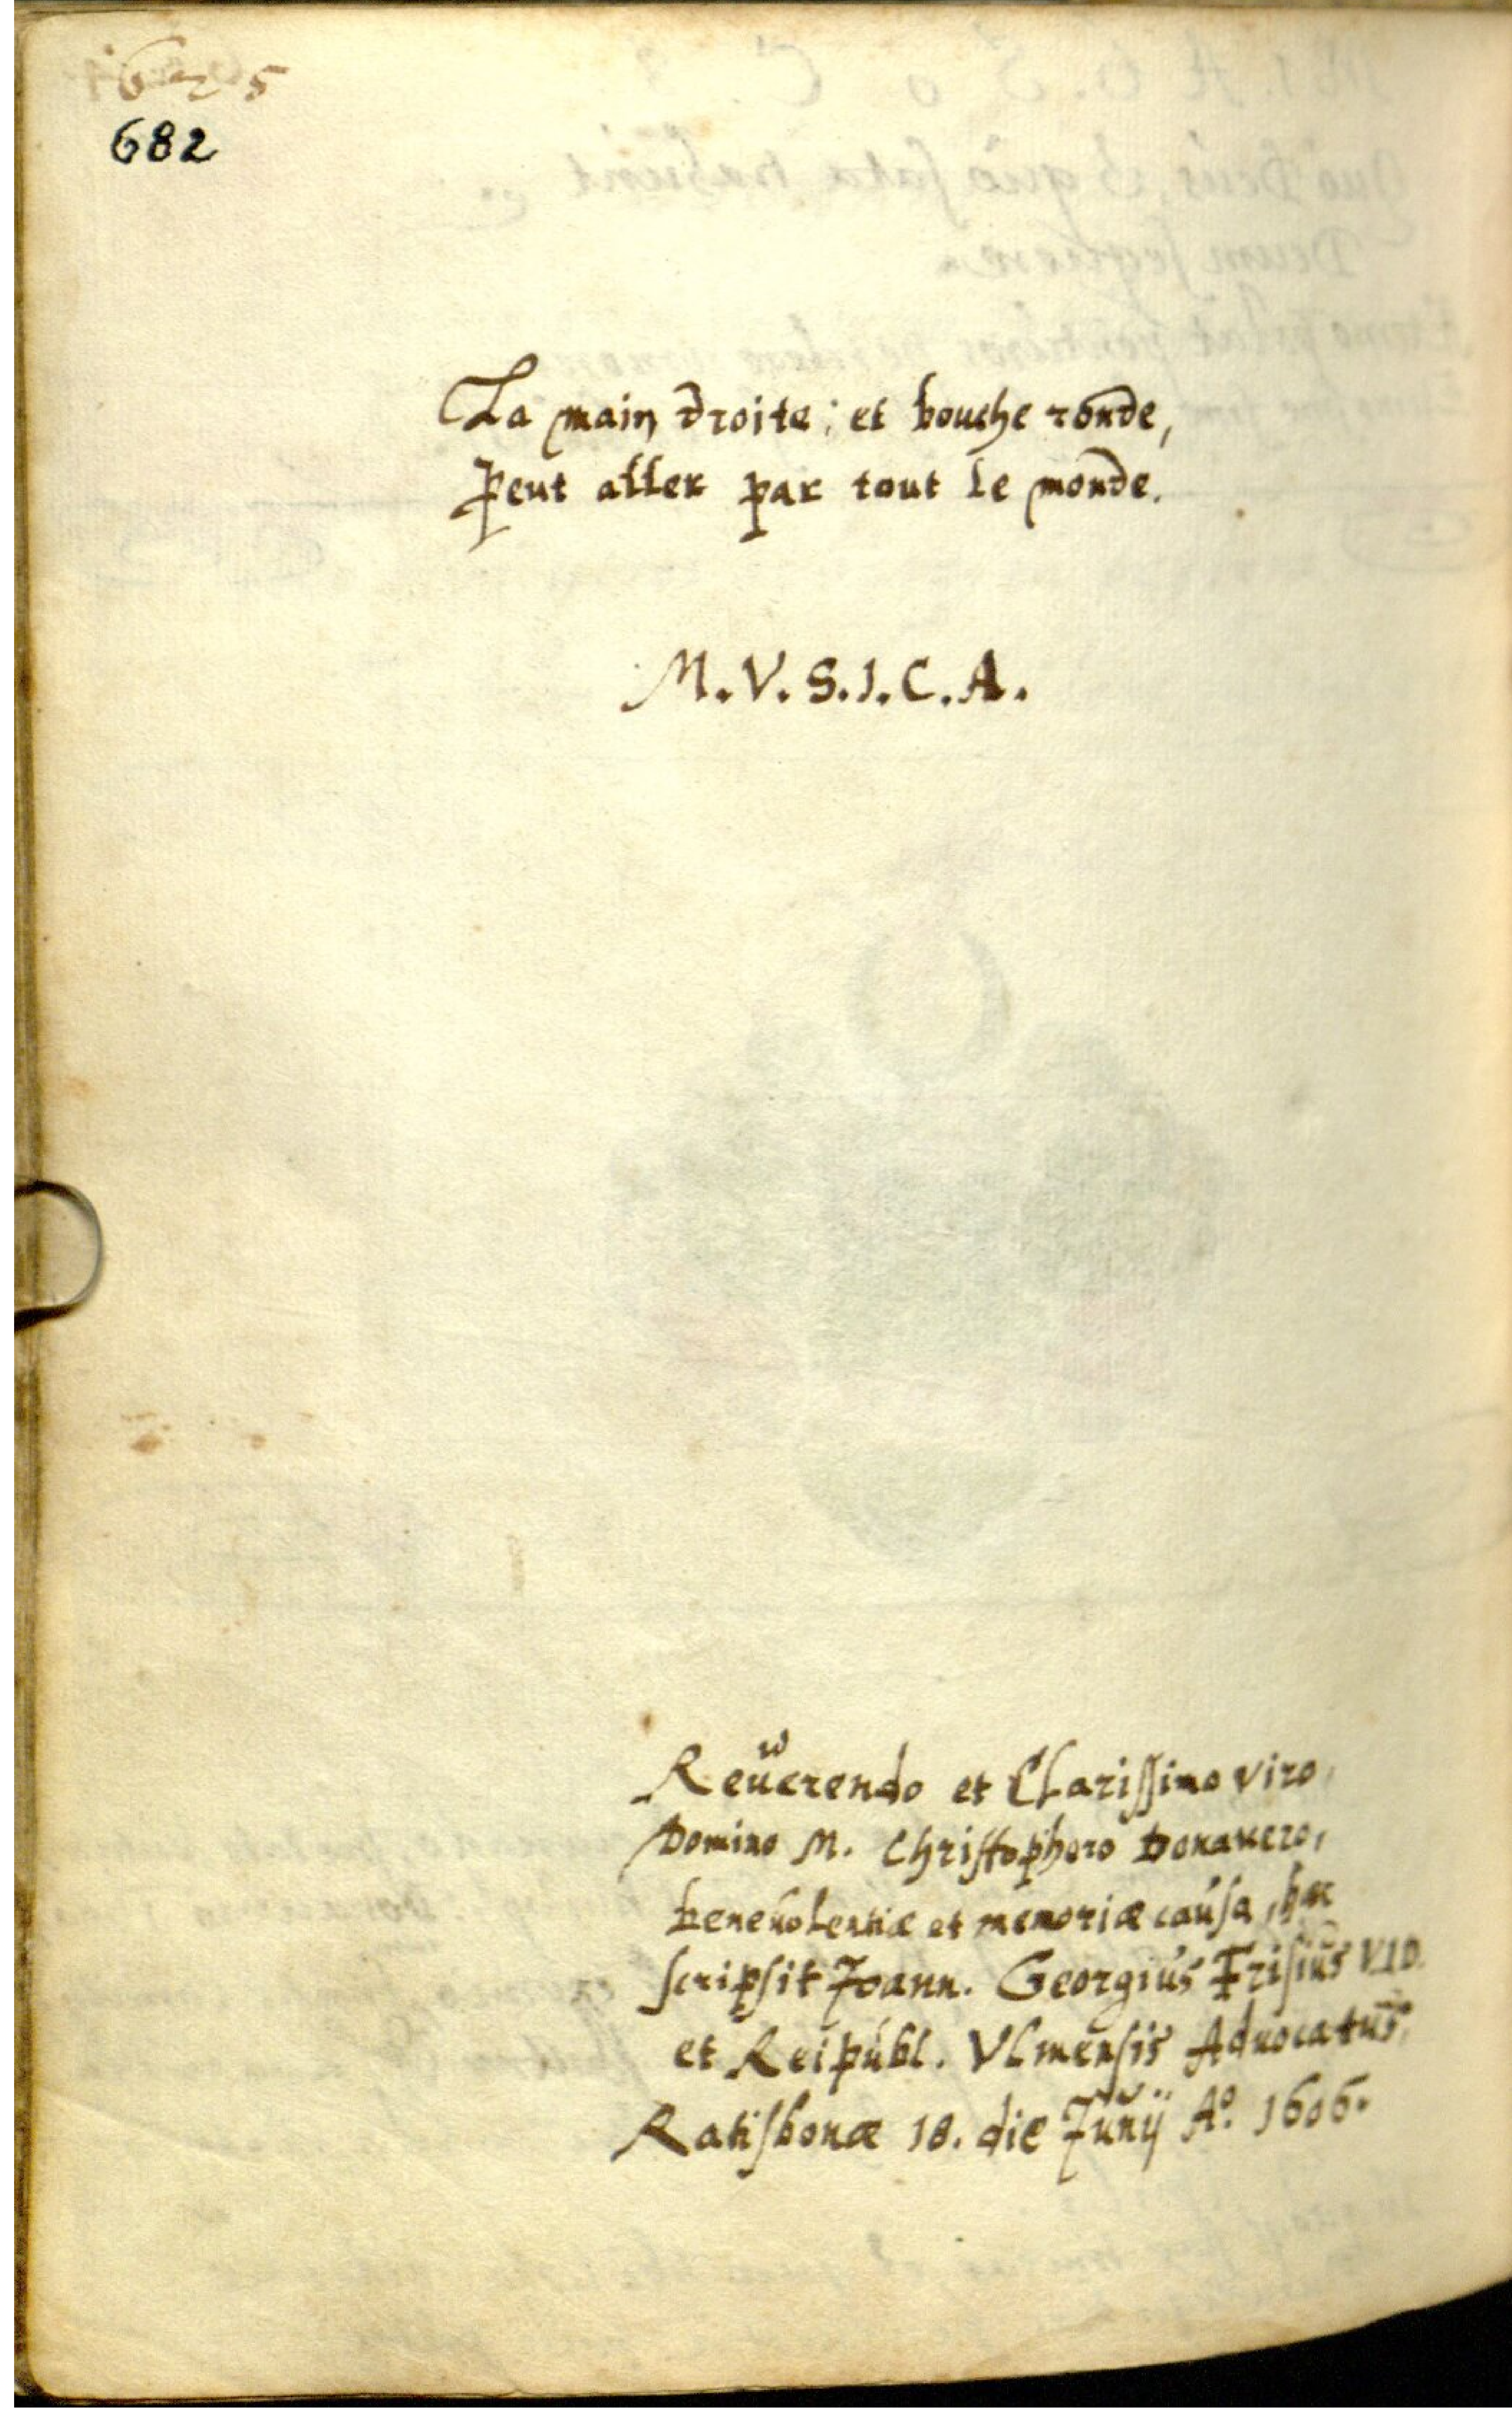 625
682
La main droite; et bouche ronde,
Peut aller par tout le monde.
M.V.S.I.C.A.
Reuerendo et Clarissimo viro,
Domino M. Christophoro Donavero,
benevolentiæ et memoriæ causa, hæc
scripsit Joann. Georgius Frisius V.I.D.
et Reipubl. Vlmensis Advocatus,
Ratisbonæ 18. die Junij Aº. 1606.